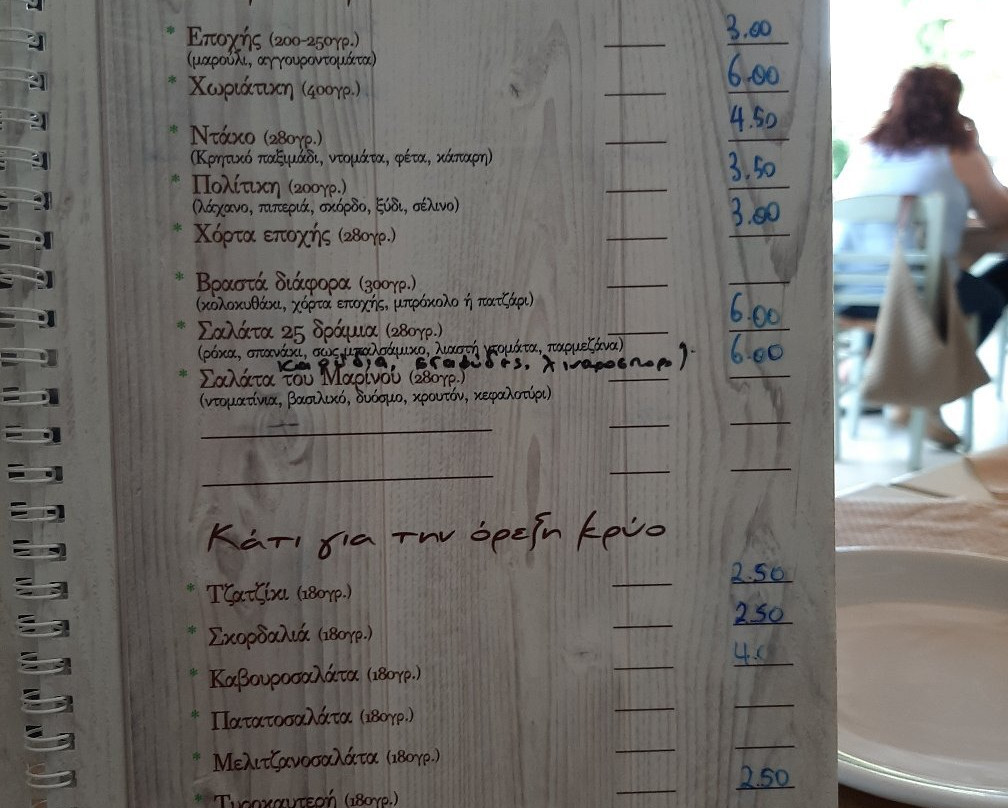 * Εποχής (200-250γρ.) 3.00
(μαρούλι, αγγουροντομάτα)
* Χωριάτικη (400γρ.) 6.00
* Ντάκο (280γρ.) 4.50
(Κρητικό παξιμάδι, ντομάτα, φέτα, κάπαρη)
* Πολίτικη (200γρ.) 3.50
(λάχανο, πιπεριά, σκόρδο, ξύδι, σέλινο)
* Χόρτα εποχής (280γρ.) 3.00
* Βραστά διάφορα (300γρ.)
(κολοκυθάκι, χόρτα εποχής, μπρόκολο ή πατζάρι)
* Σαλάτα 25 δράμια (280γρ.) 6.00
(ρόκα, σπανάκι, σως μπαλσάμικο, λιαστή ντομάτα, παρμεζάνα)
καρύδια, σταφύδες, λιναροσπορο).
* Σαλάτα του Μαρίνου (280γρ.) 6.00
(ντοματίνια, βασιλικό, δυόσμο, κρουτόν, κεφαλοτύρι)
Κάτι για την όρεξη κρύο
* Τζατζίκι (180γρ.) 2.50
* Σκορδαλιά (180γρ.) 2.50
* Καβουροσαλάτα (180γρ.) 4.0
* Πατατοσαλάτα (180γρ.)
* Μελιτζανοσαλάτα (180γρ.)
* Τυροκαυτερή (180γρ.) 2.50